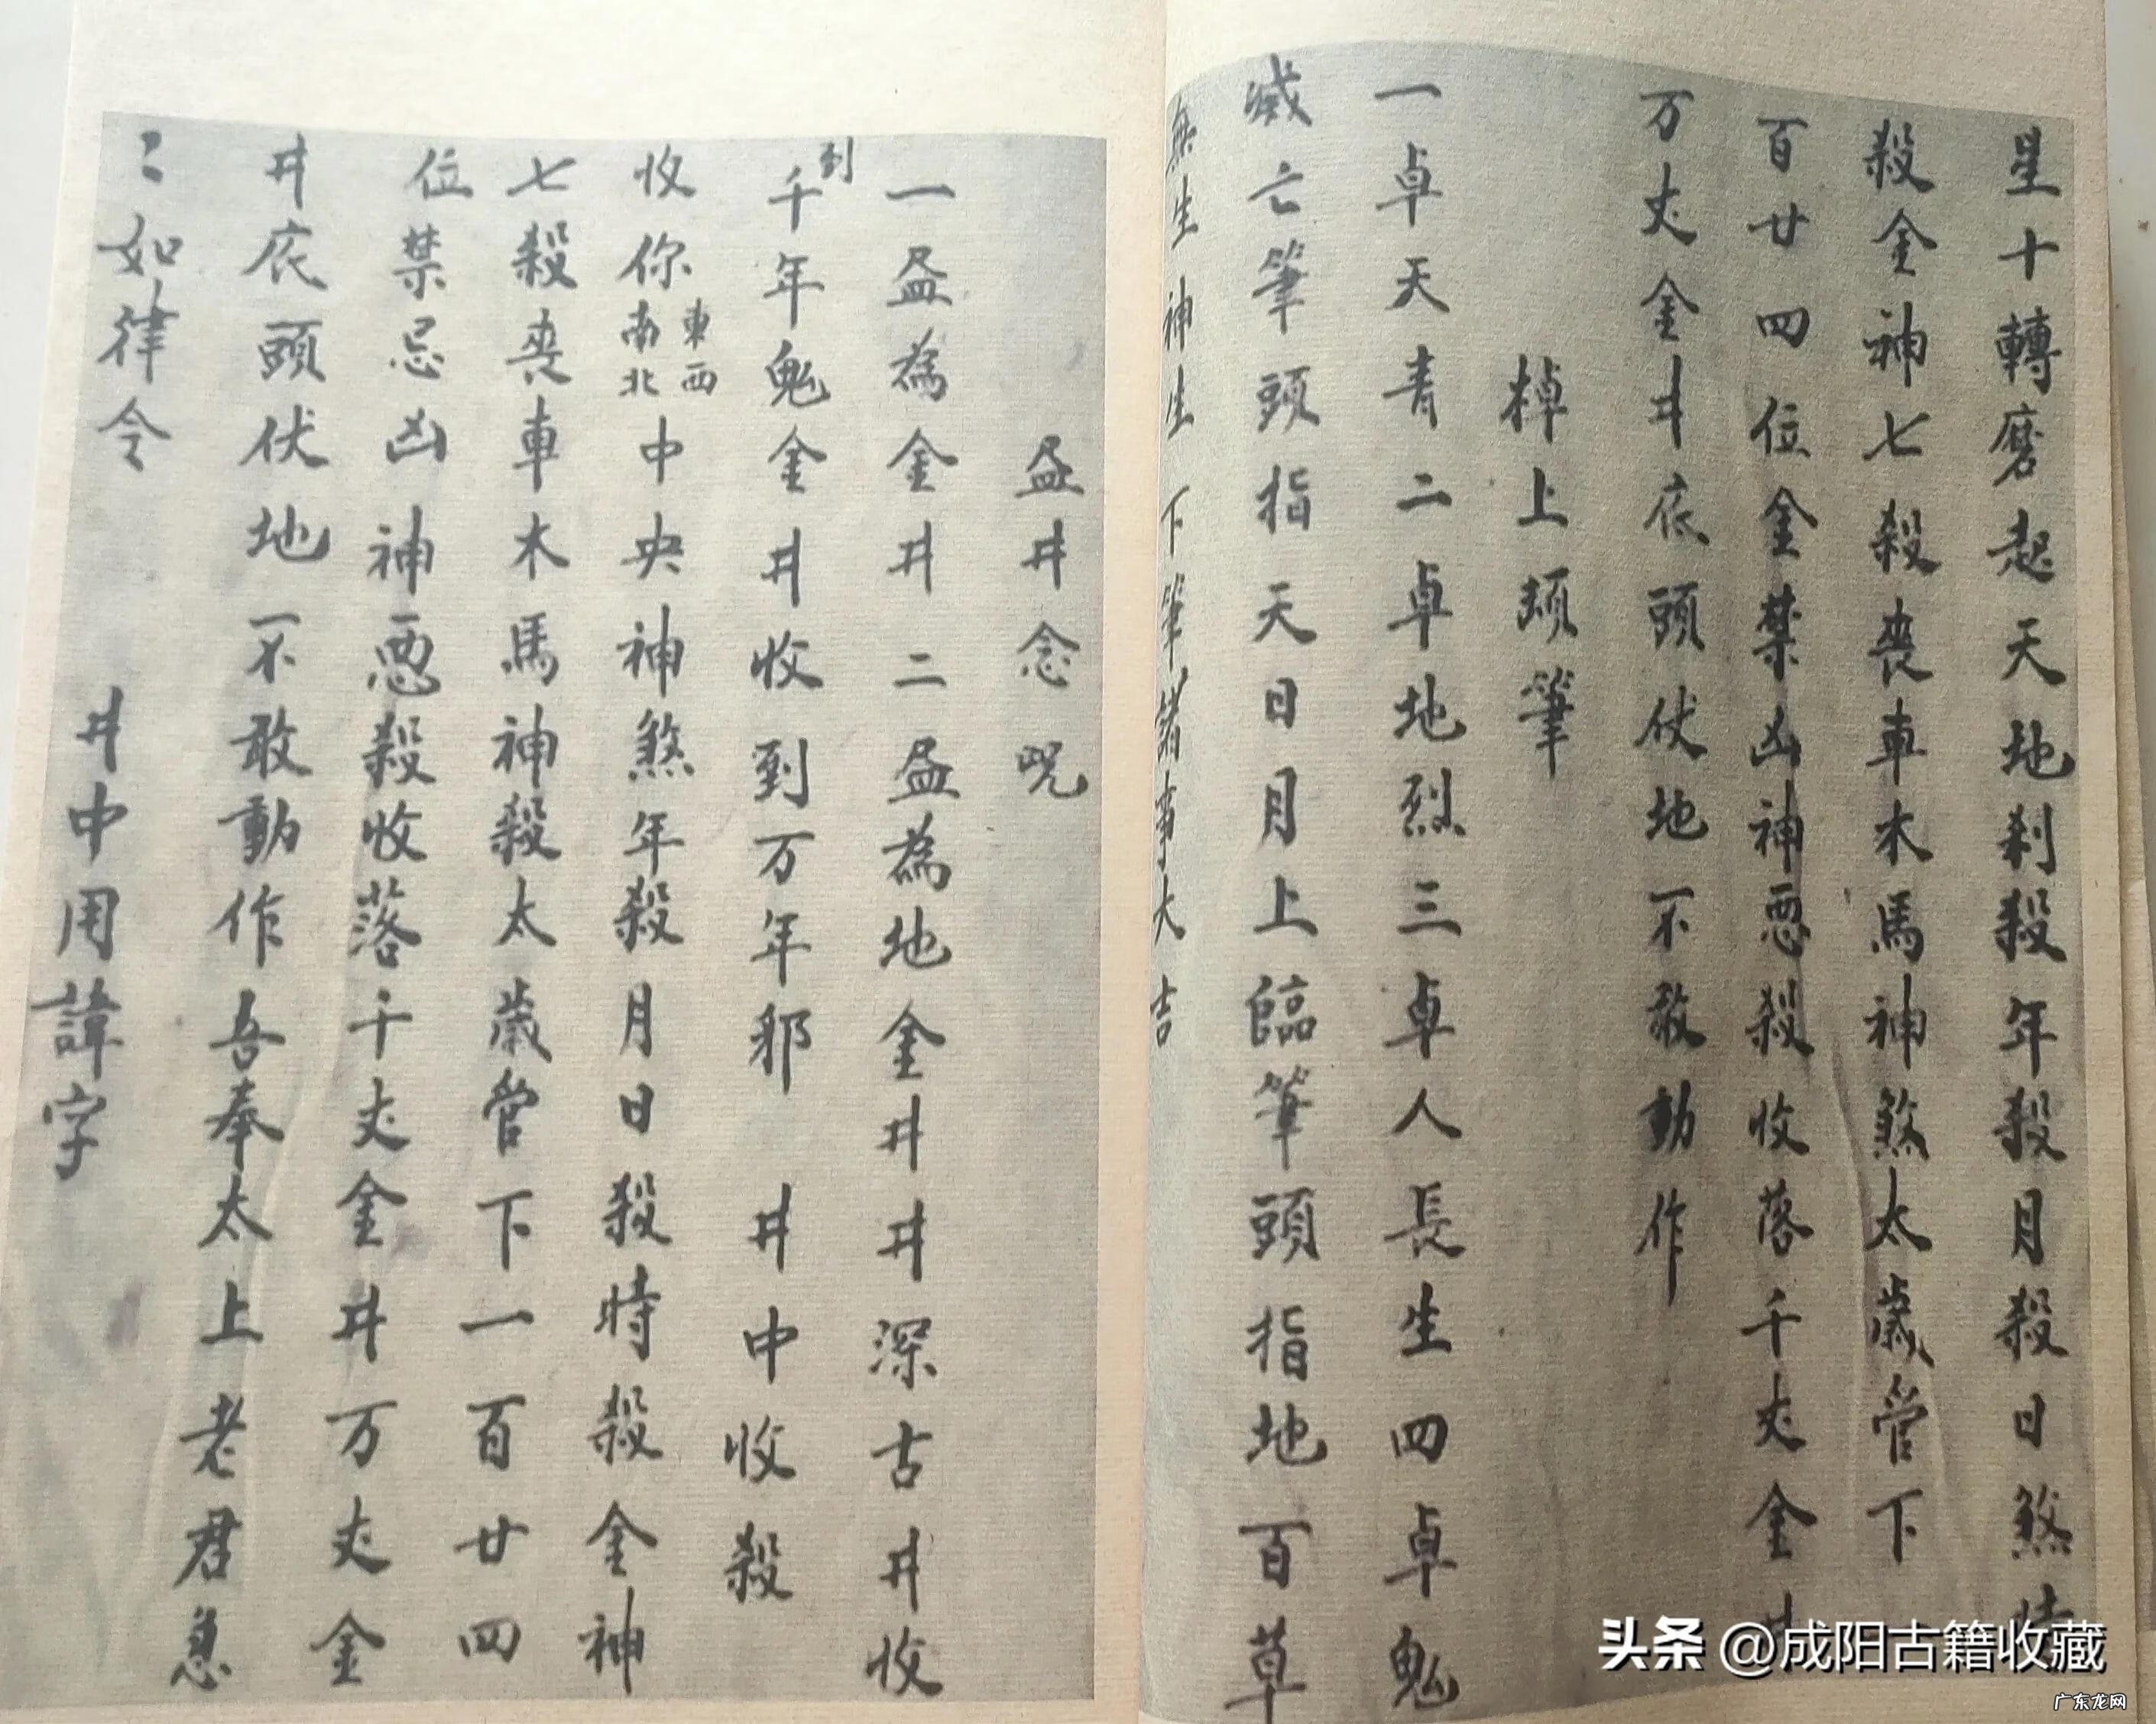 星十轉磨起天地刹殺年殺月殺日煞時
殺金神七殺喪車木馬神煞太歲管下
百廿四位金禁凶神惡殺收落千丈金井
万丈金井底頭伏地不敢動作
棹上頓筆
一卓天青二卓地烈三卓人長生四卓鬼
滅亡筆頭指天日月上臨筆頭指地百草
無生神生 下筆諸事大吉
盁井念咒
一盁為金井二盁為地金井井深古井收
到千年鬼金井收到万年邪 井中收殺
收你東西南北中央神煞年殺月日殺時殺金神
七殺喪車木馬神殺太歲管下一百廿四
位禁忌凶神惡殺收落千丈金井万丈金
井底頭伏地不敢動作吾奉太上老君急
〻如律令 井中用諱字
头条 @成阳古籍收藏
广东龙网